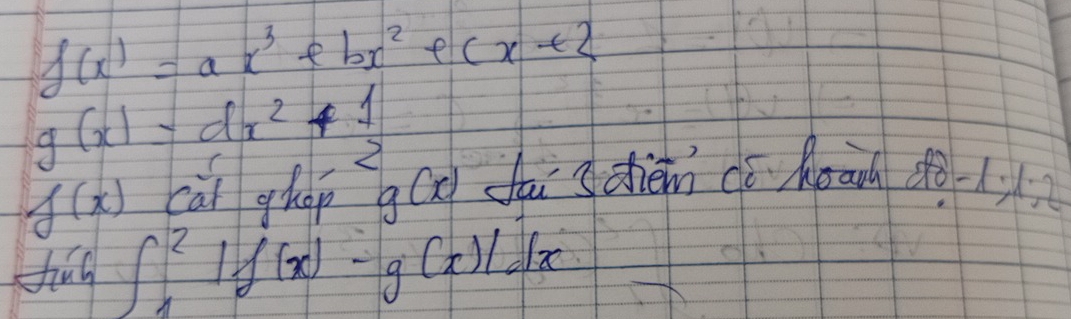 f(x) = ax³ + bx² + cx + 2
g(x) = dx² + 1
f(x) cắt g(x) tại 3 điểm có hoành độ -1;1;2
tính ∫ 2 |f(x) - g(x)| dx